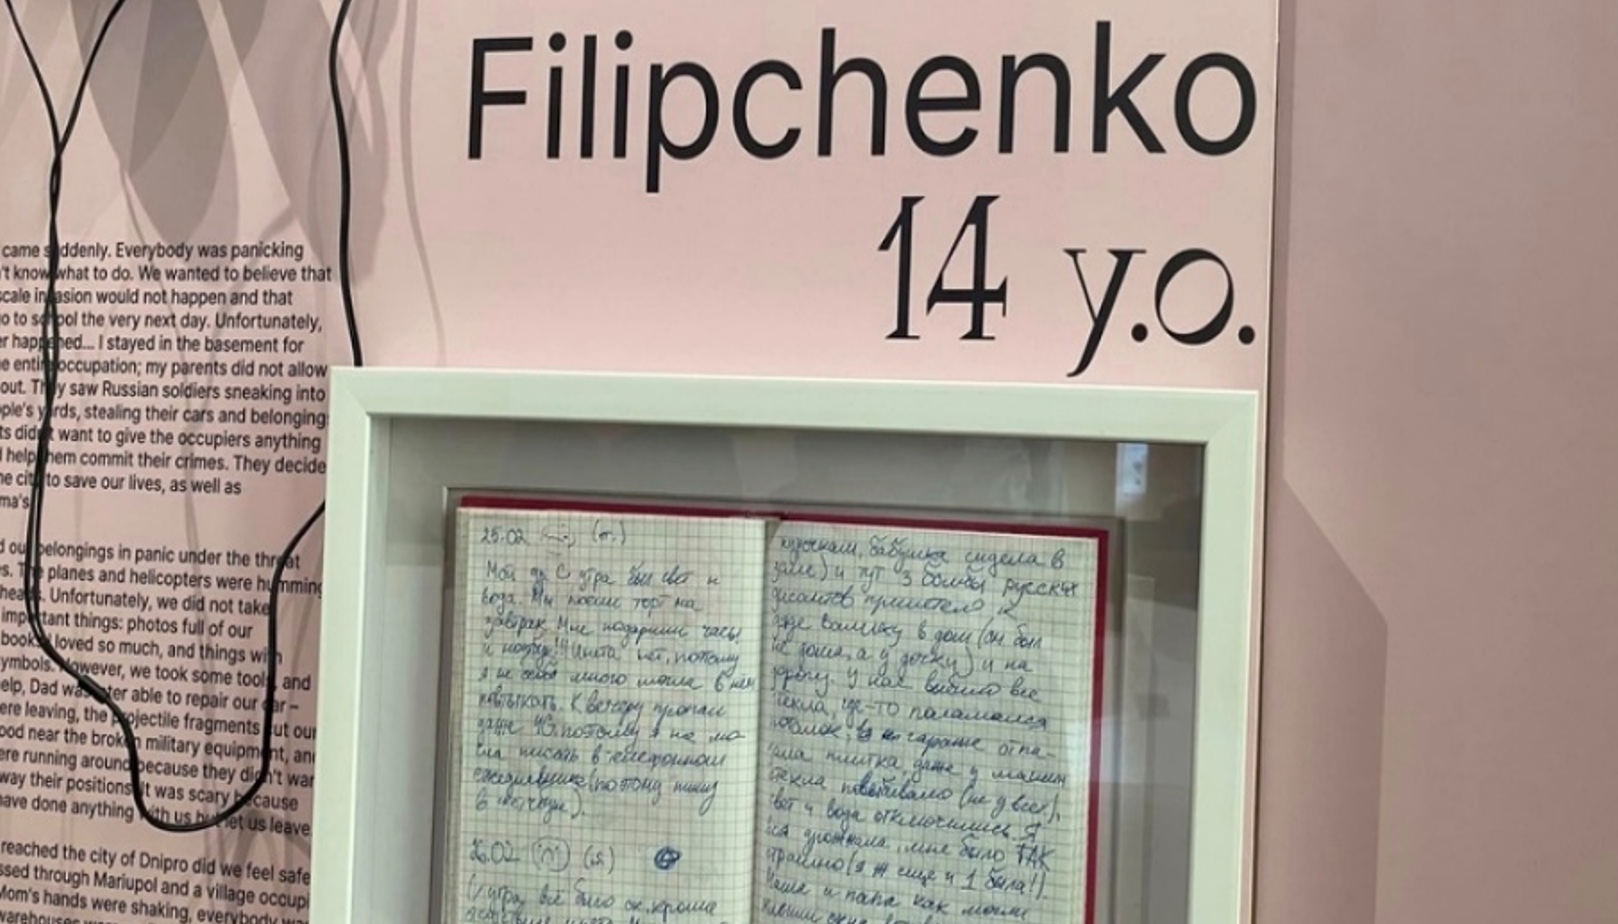 Filipchenko
14 y.o.
came suddenly. Everybody was panicking
't know what to do. We wanted to believe that
scale invasion would not happen and that
o to school the very next day. Unfortunately,
er happened... I stayed in the basement for
e entire occupation; my parents did not allow
out. They saw Russian soldiers sneaking into
ople's yards, stealing their cars and belonging
ts didn't want to give the occupiers anything
d help them commit their crimes. They decide
he city to save our lives, as well as
ma's
d our belongings in panic under the threat
s. The planes and helicopters were humming
heads. Unfortunately, we did not take
important things: photos full of our
books I loved so much, and things with
symbols. However, we took some tools, and
elp, Dad was later able to repair our car –
ere leaving, the projectile fragments cut our
ood near the broken military equipment, and
ere running around because they didn't wan
way their positions. It was scary because
have done anything with us but let us leave
reached the city of Dnipro did we feel safe
ssed through Mariupol and a village occupi
Mom's hands were shaking, everybody was
warehouses
25.02 (пт.)
Мой др С утра был свет и
вода. Мы поели торт на
завтрак. Мне подарили часы
и ноутбук!!! Инета нет, потому
я не особо много могла в нём
потыкать. К вечеру пропал
даже 4G, потому я не мо
гла писать в телефонном
ежедневнике (потому пишу
в тетради).
26.02 (я)
С утра, всё было ок, кроме
кусочкам, бабушка сидела в
зале) и тут 3 бомбы русских
прилетело к
деде Валику в дом (он был
не дома, а у дочки) и на
дорогу. У нас выбило все
стёкла, где-то поломался
в гараже отпа-
ла плитка, даже у машин
стёкла повыбивало (не у всех),
свет и вода отключились. Я
вся дрожала, мне было ТАК
страшно (я ж ещё и 1 была!).
Мама и папа как могли